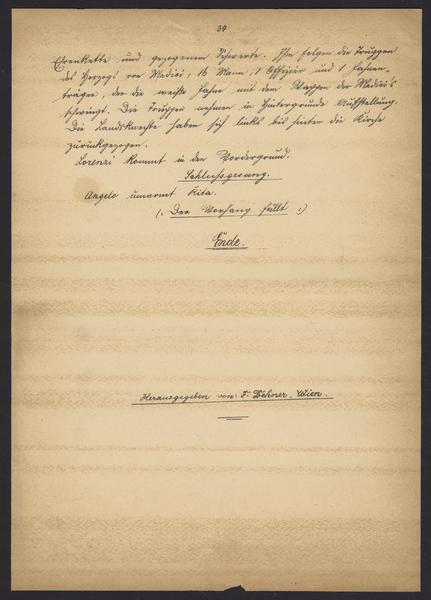 34
Ehrenkette und gezogenem Schwerte. Ihm folgen die Truppen
des Herzogs von Medici; 16 Mann, 1 Offizier und 1 Fahnen-
träger, der die weiße Fahne mit dem Wappen der Medici's
schwingt. Die Truppen nehmen im Hintergrunde Aufstellung.
Die Landsknechte haben sich links bis hinter die Kirche
zurückgezogen.
Lorenzi kommt in den Vordergrund.
Schlussgesang.
Angelo umarmt Rita.
(: Der Vorhang fällt :)
Ende.
Herausgegeben von: F. Dehner, Wien.